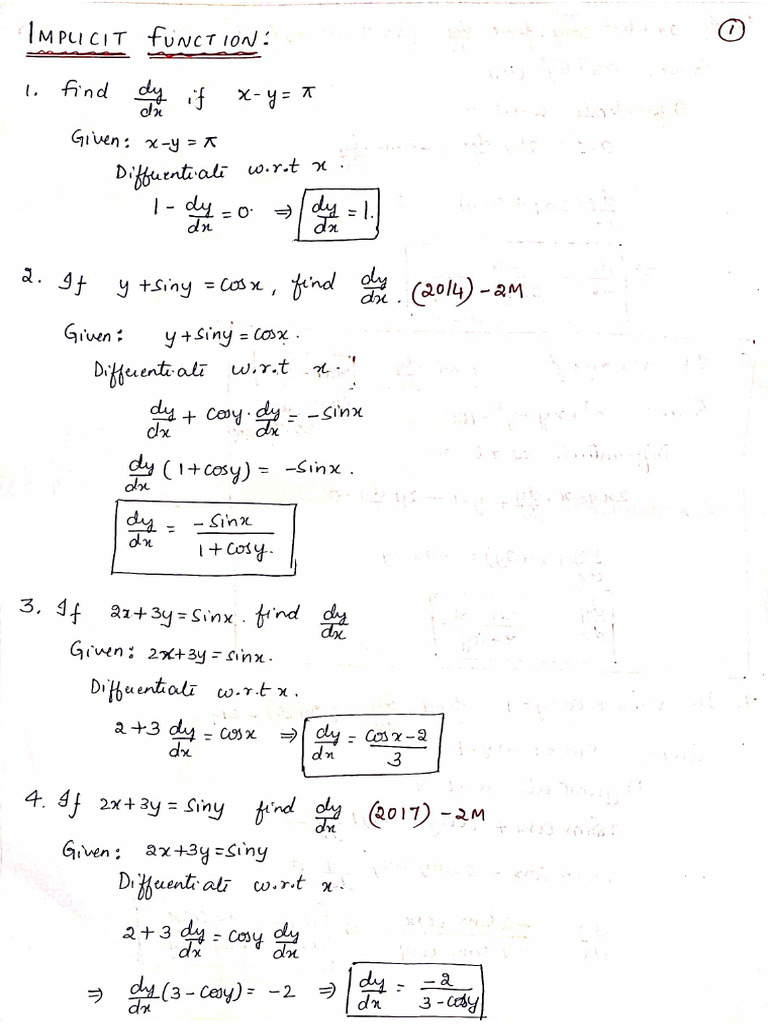 IMPLICIT FUNCTION: 1
1. Find dy/dx if x-y = π
Given: x-y = π
Differentiate w.r.t x.
1 - dy/dx = 0. ⇒ dy/dx = 1.
2. If y + siny = cosx, find dy/dx. (2014) - 2M
Given: y + siny = cosx.
Differentiate w.r.t x.
dy/dx + cosy. dy/dx = -sinx
dy/dx (1 + cosy) = -sinx.
dy/dx = -sinx / 1 + cosy.
3. If 2x+3y = sinx. find dy/dx
Given: 2x+3y = sinx.
Differentiate w.r.t x.
2 + 3 dy/dx = cosx ⇒ dy/dx = cosx-2 / 3
4. If 2x+3y = siny find dy/dx (2017) - 2M
Given: 2x+3y = siny
Differentiate w.r.t x.
2 + 3 dy/dx = cosy dy/dx
⇒ dy/dx (3 - cosy) = -2 ⇒ dy/dx = -2 / 3 - cosy